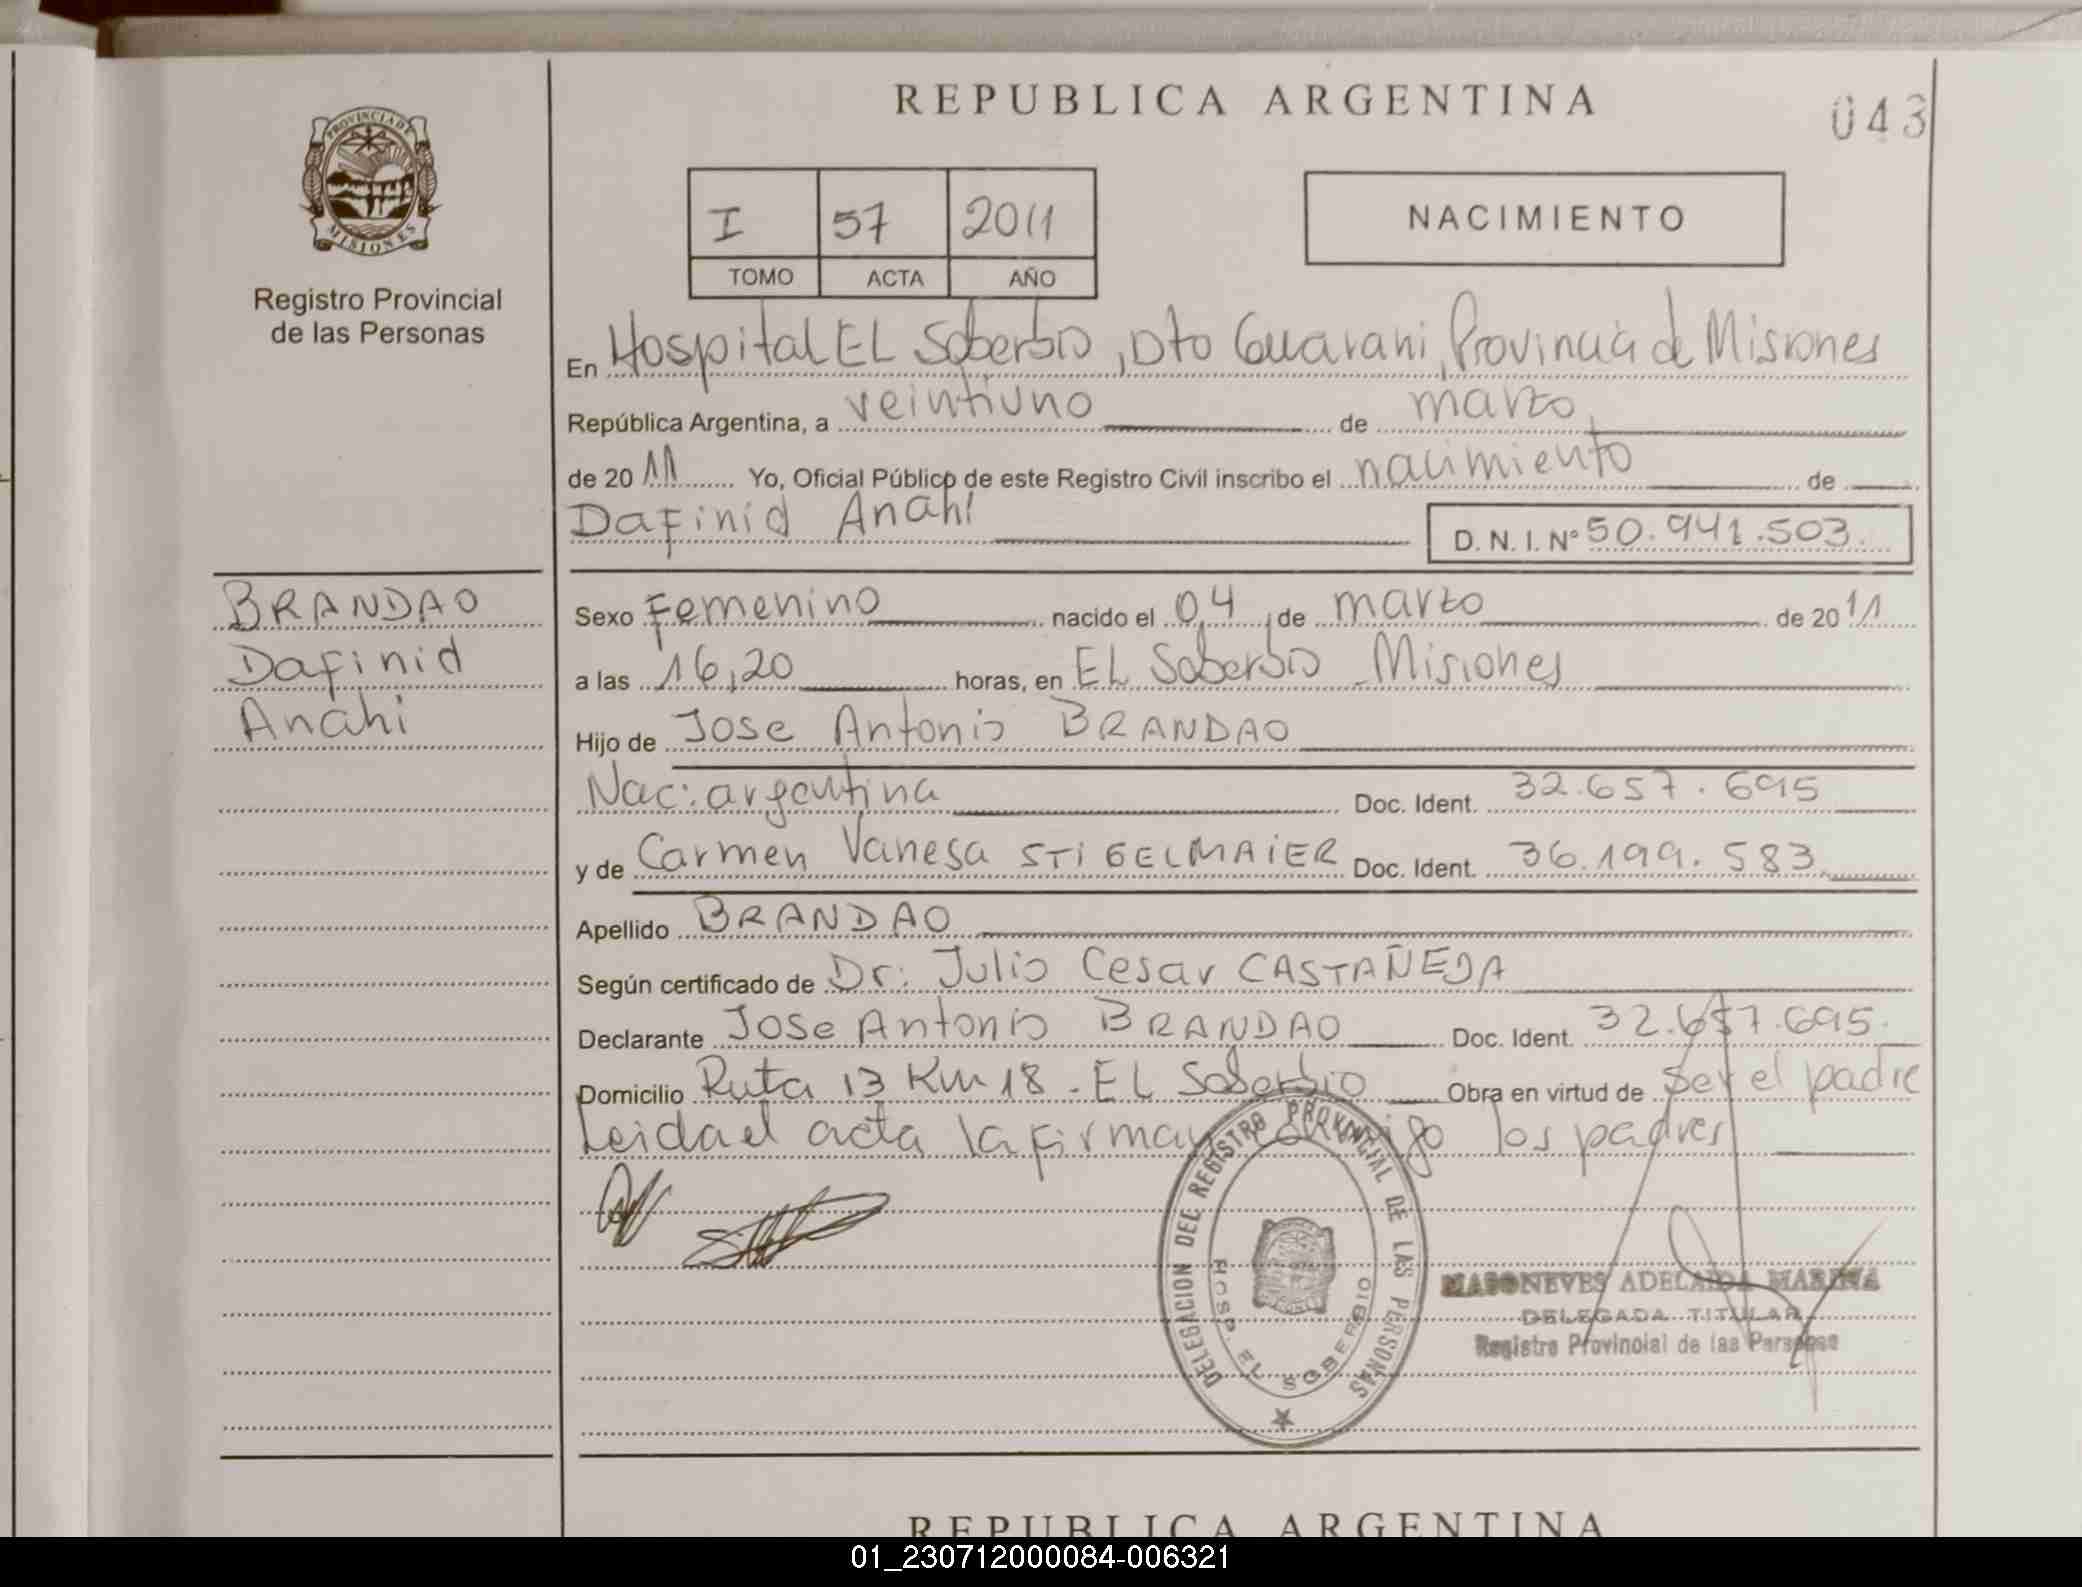 REPUBLICA ARGENTINA
043
PROVINCIA DE
MISIONES
Registro Provincial
de las Personas
I 57 2011
TOMO ACTA AÑO
NACIMIENTO
En Hospital EL Soberbio, Dto Guarani, Provincia de Misiones
República Argentina, a veintiuno de marzo
de 2011 Yo, Oficial Público de este Registro Civil inscribo el nacimiento de
Dafinid Anahi D. N. I. Nº 50.941.503.
BRANDAO
Dafinid
Anahi
Sexo Femenino nacido el 04 de marzo de 2011
a las 16,20 horas, en EL Soberbio Misiones
Hijo de Jose Antonio BRANDAO
Nac: argentina Doc. Ident. 32.657.695
y de Carmen Vanesa STIGELMAIER Doc. Ident. 36.199.583
Apellido BRANDAO
Según certificado de Dr: Julio Cesar CASTAÑEDA
Declarante Jose Antonio BRANDAO Doc. Ident. 32.657.695
Domicilio Ruta 13 Km 18 - EL Soberbio Obra en virtud de ser el padre
Leida el acta la firman conmigo los padres
DELEGACION DEL REGISTRO PROVINCIAL DE LAS PERSONAS
HOSP. EL SOBERBIO
MASONEVES ADELAIDA MARINA
DELEGADA TITULAR
Registro Provincial de las Personas
REPUBLICA ARGENTINA
01_230712000084-006321